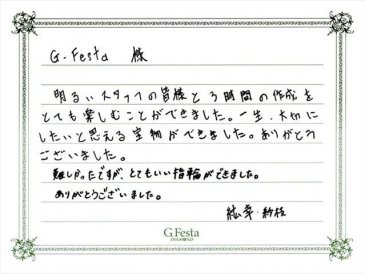 G.Festa 様
明るいスタッフの皆様と3時間の作成を
とても楽しむことができました。一生、大切に
したいと思える宝物ができました。ありがとう
ございました。
難しかったですが、とてもいい指輪ができました。
ありがとうございました。
紗枝
G.Festa
DIAMOND